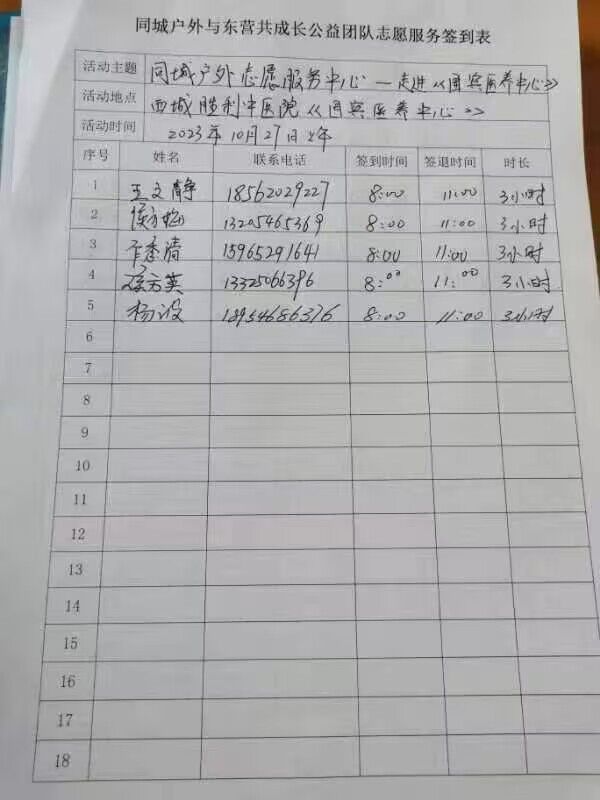 同城户外与东营共成长公益团队志愿服务签到表
活动主题 同城户外志愿服务中心—走进《国宾医养中心》
活动地点 西城胜利中医院《国宾医养中心》
活动时间 2023年10月27日上午
序号 姓名 联系电话 签到时间 签退时间 时长
1 王文静 18562029227 8:00 11:00 3小时
2 13205465369 8:00 11:00 3小时
3 15965291641 8:00 11:00 3小时
4 13325066396 8:00 11:00 3小时
5 杨波 18954686376 8:00 11:00 3小时
6
7
8
9
10
11
12
13
14
15
16
17
18